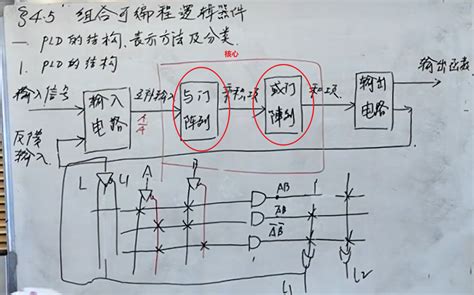 §4.5 组合可编程逻辑器件
一、PLD的结构、表示方法及分类
1. PLD的结构
核心
输入信号 输入电路 互补输入 与门阵列 乘积项 或门阵列 和项 输出电路 输出函数
反馈输入
A
Ā
L L1 A B
AB
AB
AB
L1 L2